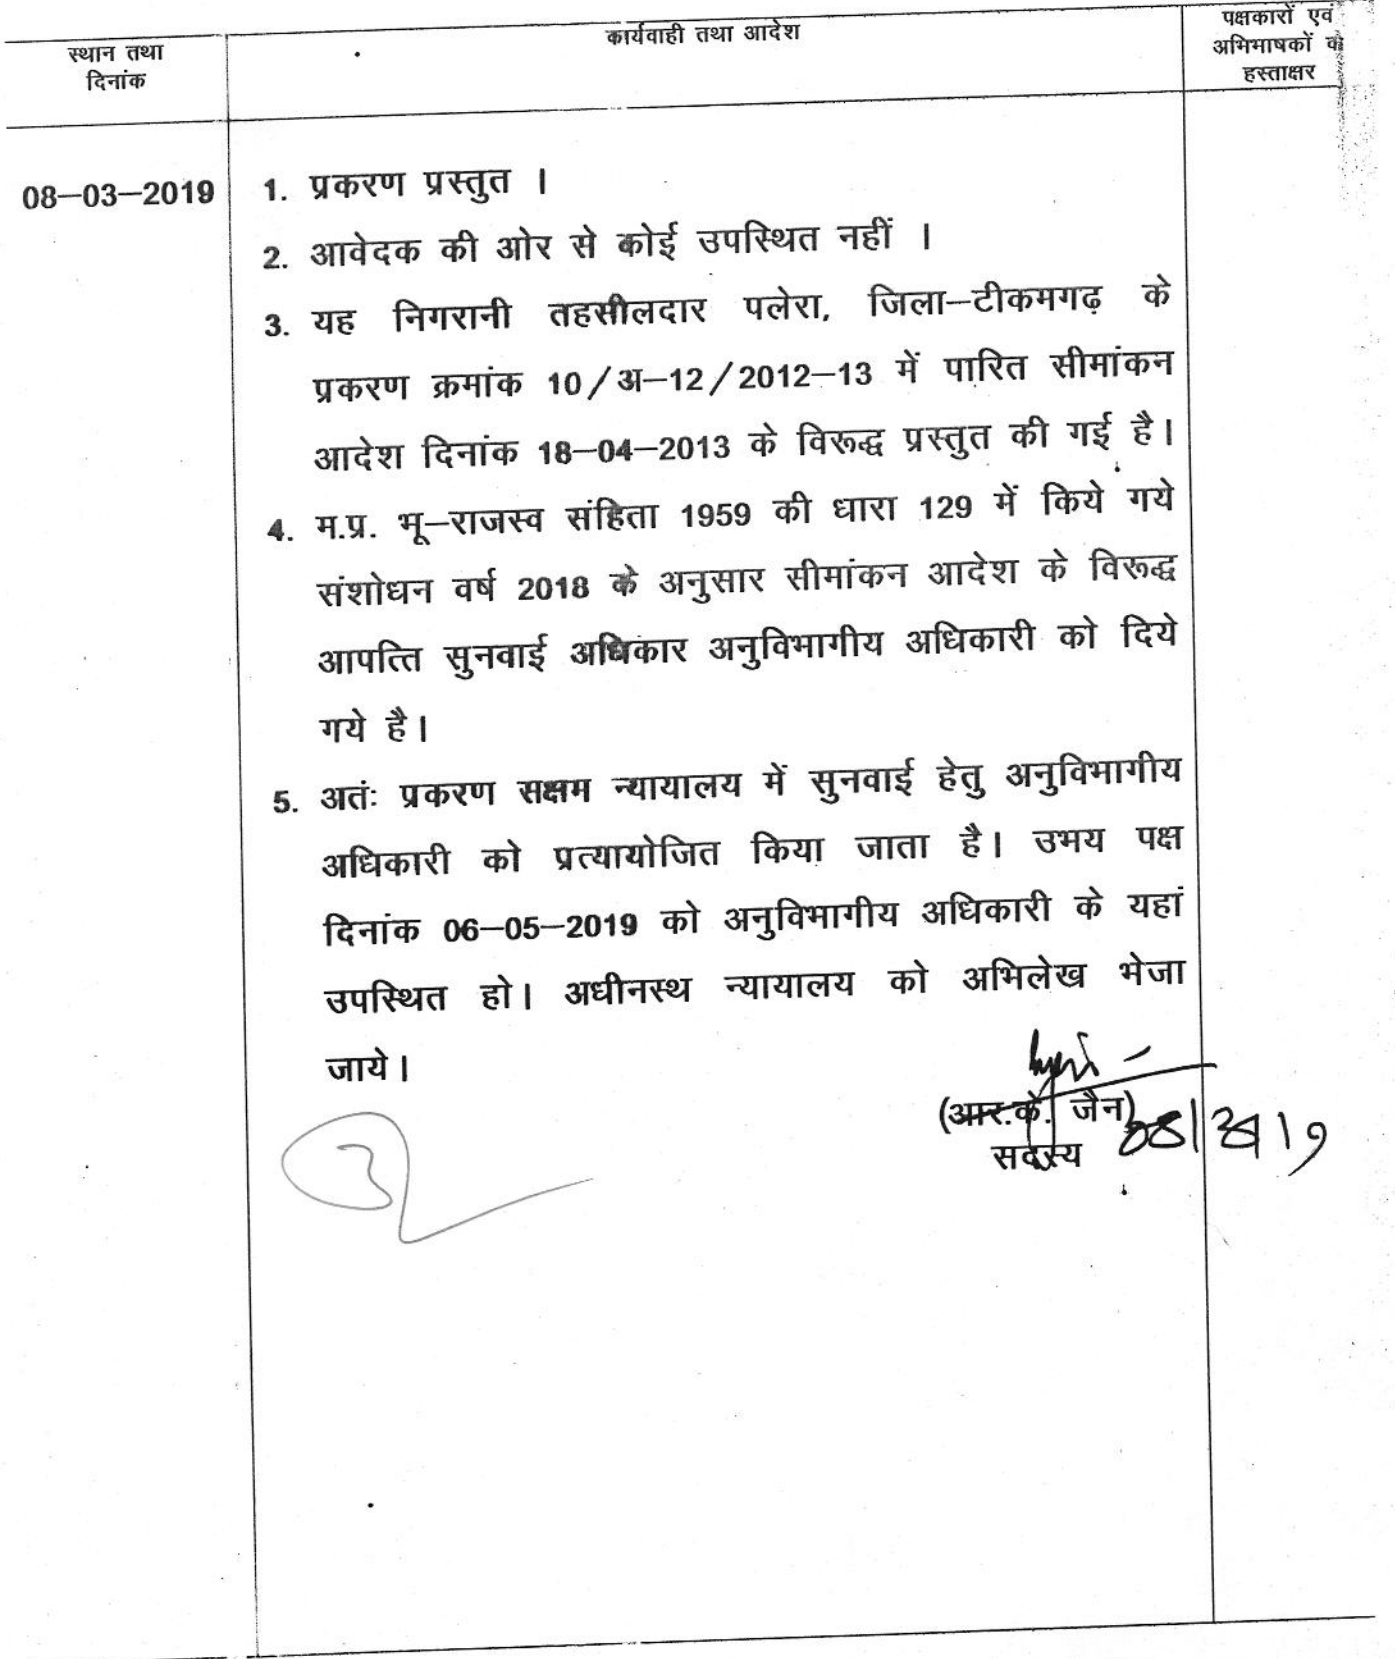 स्थान तथा
दिनांक
कार्यवाही तथा आदेश
पक्षकारों एवं
अभिभाषकों के
हस्ताक्षर
08–03–2019
1. प्रकरण प्रस्तुत ।
2. आवेदक की ओर से कोई उपस्थित नहीं ।
3. यह निगरानी तहसीलदार पलेरा, जिला–टीकमगढ़ के
प्रकरण क्रमांक 10/अ–12/2012–13 में पारित सीमांकन
आदेश दिनांक 18–04–2013 के विरूद्ध प्रस्तुत की गई है।
4. म.प्र. भू–राजस्व संहिता 1959 की धारा 129 में किये गये
संशोधन वर्ष 2018 के अनुसार सीमांकन आदेश के विरूद्ध
आपत्ति सुनवाई अधिकार अनुविभागीय अधिकारी को दिये
गये है।
5. अतंः प्रकरण सक्षम न्यायालय में सुनवाई हेतु अनुविभागीय
अधिकारी को प्रत्यायोजित किया जाता है। उभय पक्ष
दिनांक 06–05–2019 को अनुविभागीय अधिकारी के यहां
उपस्थित हो। अधीनस्थ न्यायालय को अभिलेख भेजा
जाये।
(आर.के. जैन)
सदस्य